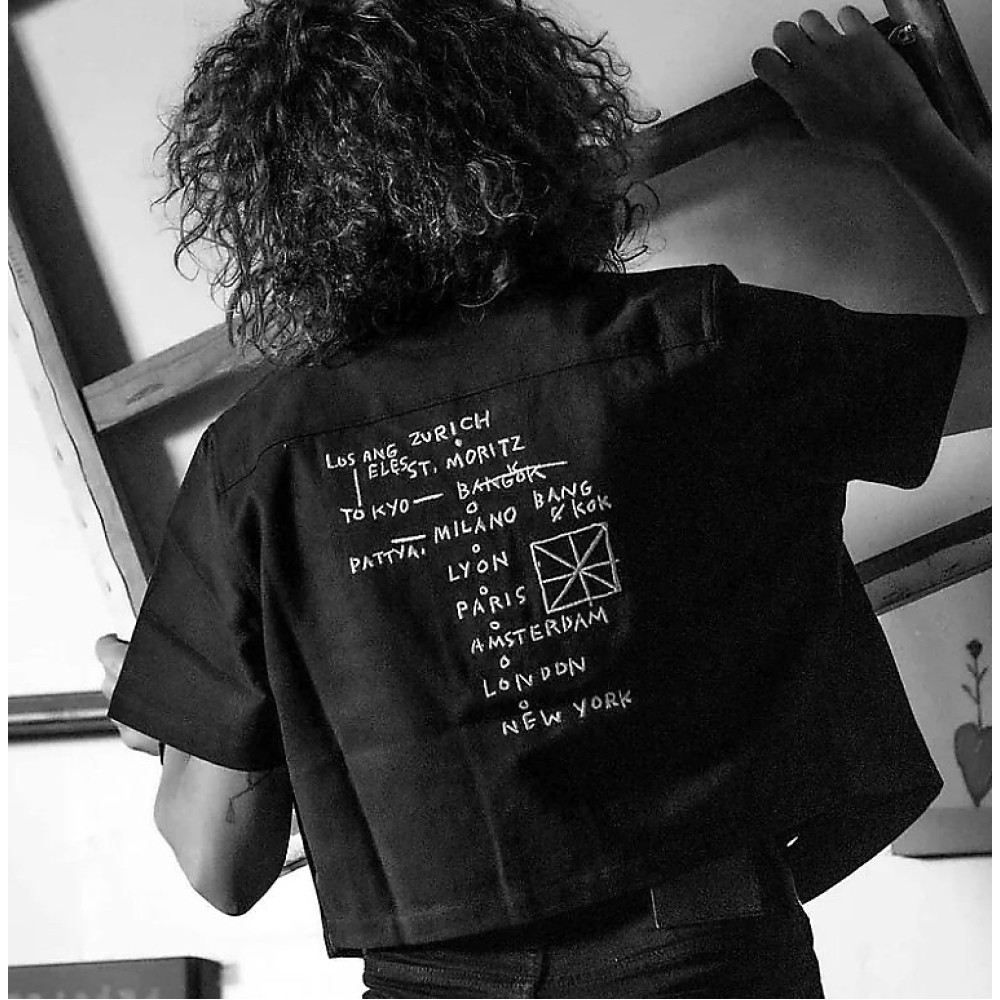 LOS ANG ZURICH
ELES ST. MORITZ
TOKYO — BANGKOK
PATTYA. MILANO BANG
KOK
LYON
PARIS
AMSTERDAM
LONDON
NEW YORK